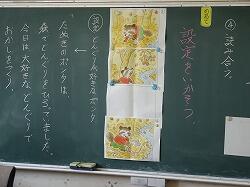 ④ 読み合う。
めあて
設定をいかそう。
設定 どんぐり大好きなポンタ
たぬきのポンタは、
森でどんぐりをひろっていました。
今日は、大好きな、どんぐりで
おかしをつくろう。